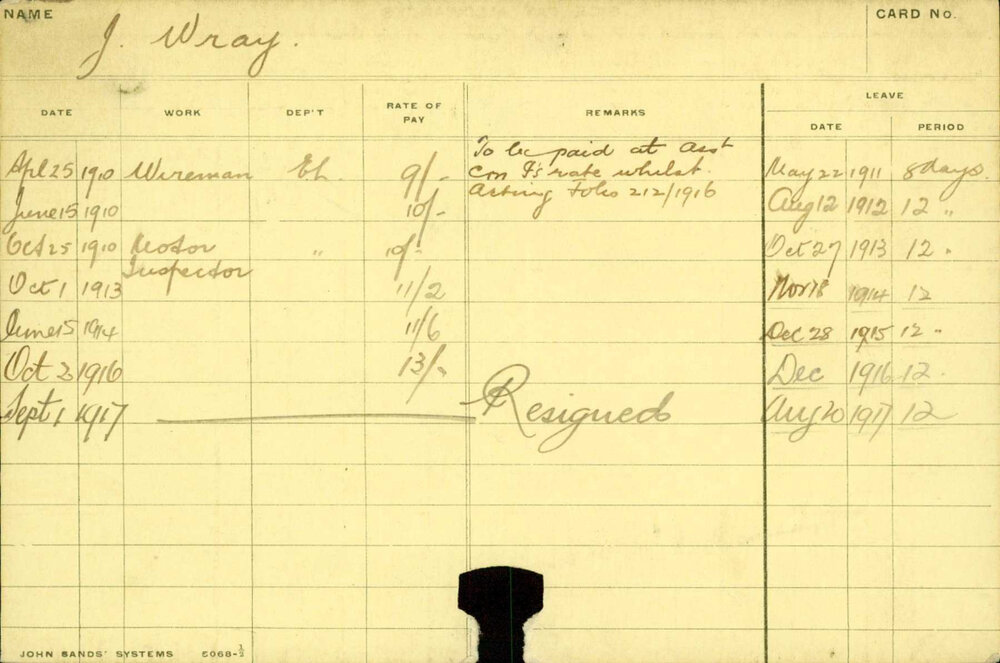 NAME
CARD No.
J. Wray.
LEAVE
DATE WORK DEP'T RATE OF PAY REMARKS DATE PERIOD
To be paid at asst
Apl 25 1910 Wireman El. 9/- rate whilst May 22 1911 8 days.
June 15 1910 10/- Acting Folio 212/1916 Aug 12 1912 12 "
Oct 25 1910 Motor " 10/- Oct 27 1913 12 "
Inspector
Oct 1 1913 11/2 Nov 18 1914 12
June 15 1914 11/6 Dec 28 1915 12 "
Oct 3 1916 13/- Dec 1916 12 "
Sept 1 1917 Resigned Aug 20 1917 12
JOHN SANDS' SYSTEMS 5068-½